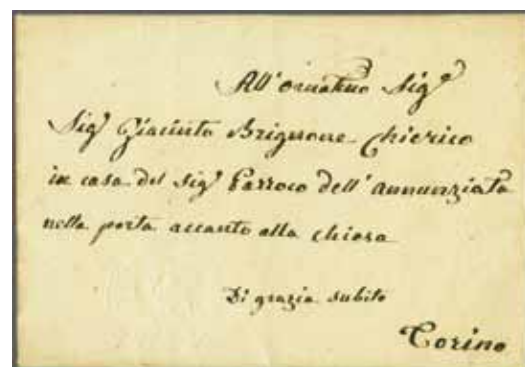 All'ornatmo Sigr
Sigr Giacinto Brignone Chierico
in casa del Sigr Parroco dell'annunziata
nella porta accanto alla chiesa
Di grazia subito
Torino